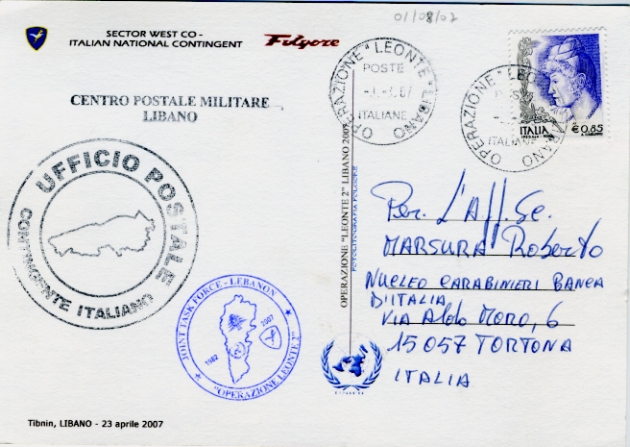 SECTOR WEST CO -
ITALIAN NATIONAL CONTINGENT
Folgore
01/08/07
CENTRO POSTALE MILITARE
LIBANO
UFFICIO POSTALE
CONTINGENTE ITALIANO
JOINT TASK FORCE - LEBANON
1982
2007
"OPERAZIONE LEONTE 2"
Tibnin, LIBANO - 23 aprile 2007
OPERAZIONE "LEONTE" LIBANO
POSTE
ITALIANE
OPERAZIONE "LEONTE 2" LIBANO 2007
OPERAZIONE "LEO
BANO
ITALIANE
ITALIA
€ 0,85
Per. L'App. Sc.
MARSURA Roberto
NUCLEO CARABINIERI BANCA
D'ITALIA
VIA Aldo MORO, 6
15057 TORTONA
ITALIA